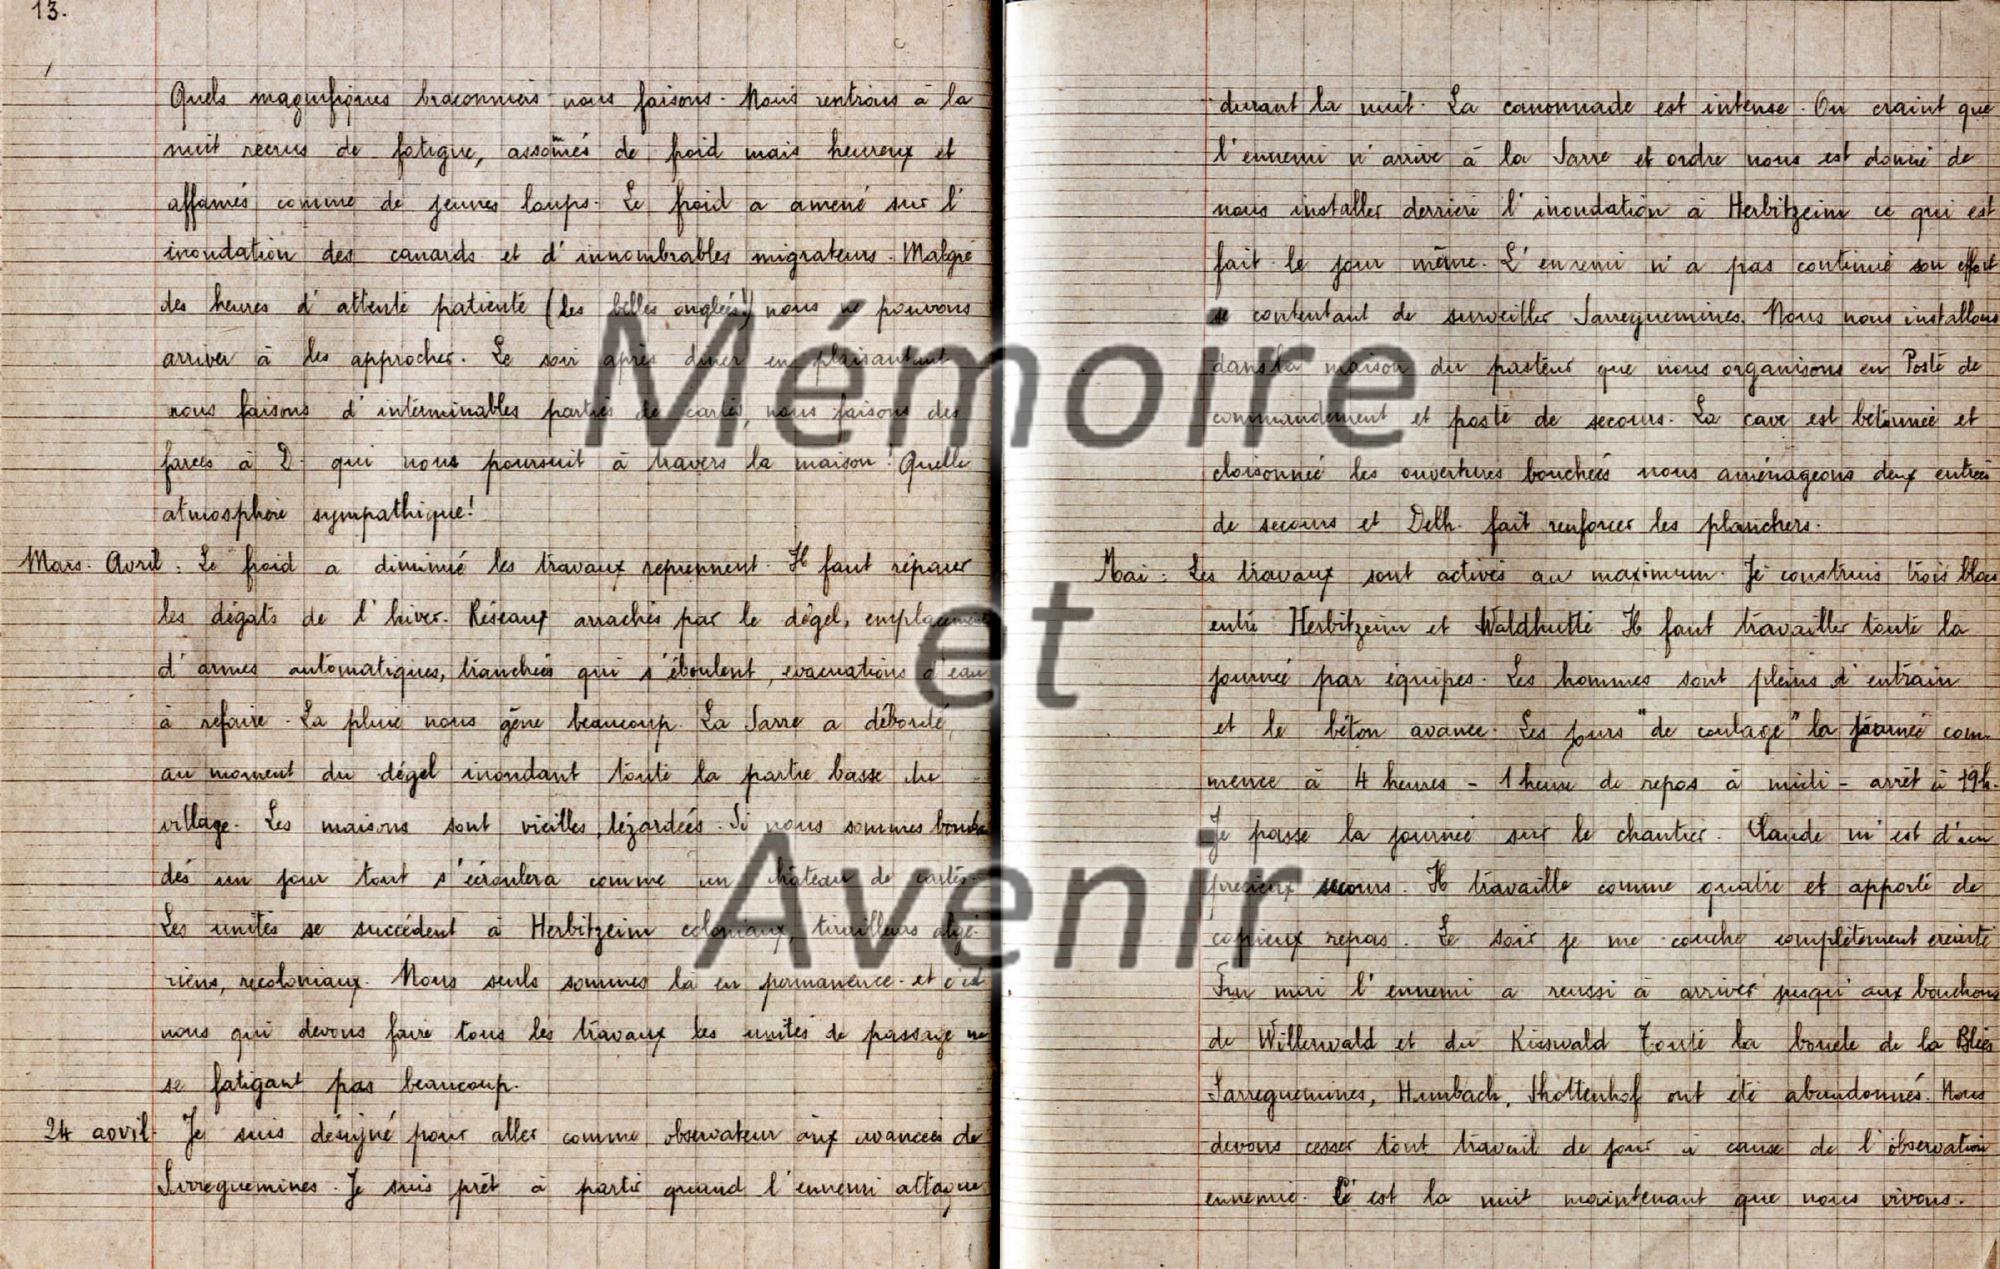 13.
Quels magnifiques braconniers nous faisons. Nous rentrons à la
nuit recrus de fatigue, assom̄és de froid mais heureux et
affamés comme de jeunes loups. Le froid a amené sur l'
inondation des canards et d'innombrables migrateurs. Malgré
des heures d'attente patiente (les belles onglées!) nous ne pouvons
arriver à les approcher. Le soir après diner en plaisantant
nous faisons d'interminables parties de cartes, nous faisons des
farces à D. qui nous poursuit à travers la maison! Quelle
atmosphère sympathique!
Mars. Avril : Le froid a diminué les travaux reprennent. Il faut réparer
les dégats de l'hiver. Réseaux arrachés par le dégel, emplacements
d'armes automatiques, tranchées qui s'éboulent, evacuations d'eau
à refaire. La pluie nous gêne beaucoup. La Sarre a débordé,
au moment du dégel inondant toute la partie basse du
village. Les maisons sont vieilles, lézardées. Si nous sommes bombar
dés un jour tout s'écroulera comme un château de cartes.
Les unités se succédent à Herbitzeim coloniaux, tirailleurs algé-
riens, recoloniaux. Nous seuls sommes là en permanence. et c'est
nous qui devons faire tous les travaux les unités de passage ne
se fatigant pas beaucoup.
24 avril Je suis désigné pour aller comme observateur aux avancées de
Sarreguemines. Je suis prêt à partir quand l'ennemi attaque
durant la nuit. La canonnade est intense. On craint que
l'ennemi n'arrive à la Sarre et ordre nous est donné de
nous installer derriere l'inondation à Herbitzeim ce qui est
fait le jour même. L'ennemi n'a pas continué son effort
se contentant de surveiller Sarreguemines. Nous nous installons
dans la maison du pasteur que nous organisons en Poste de
commandement et poste de secours. La cave est bétonnée et
cloisonnée les ouvertures bouchées nous aménageons deux entrées
de secours et Delh. fait renforcer les planchers.
Mai : Les travaux sont activés au maximum. Je construis trois blocs
entre Herbitzeim et Waldhutte Il faut travailler toute la
journée par équipes. Les hommes sont pleins d'entrain
et le béton avance. Les jours "de coulage" la journée com-
mence à 4 heures - 1 heure de repos à midi - arrêt à 19h.
Je passe la journée sur le chantier. Claude m'est d'un
précieux secours. Il travaille comme quatre et apporte de
copieux repas. Le soir je me couche complètement ereinté
Fin mai l'ennemi a reussi à arriver jusqu'aux bouchons
de Willerwald et du Kisswald Toute la boucle de la Blies
Sarreguemines, Humbach, Shottenhof ont été abandonnés. Nous
devons cesser tout travail de jour à cause de l'observation
ennemie. C'est la nuit maintenant que nous vivons.
Mémoire
et
Avenir